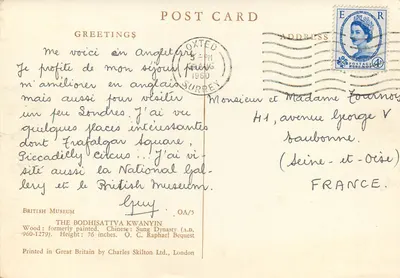 POST CARD
GREETINGS
ADDRESS
E R
OXTED
1960
SURREY
Me voici en Angleterre.
Je profite de mon séjour pour
m'améliorer en anglais
mais aussi pour visiter
un peu Londres. J'ai vu
quelques places intéressantes
dont Trafalgar Square,
Piccadilly Circus... J'ai vi-
sité aussi la National Gal-
lery et le British Museum.
Guy
Monsieur et Madame Fournoy
41, avenue George V
Eaubonne.
(Seine-et-Oise)
FRANCE.
BRITISH MUSEUM OA/5
THE BODHISATTVA KWANYIN
Wood: formerly painted, Chinese: Sung Dynasty (A.D.
960-1279). Height: 76 inches. O. C. Raphael Bequest
Printed in Great Britain by Charles Skilton Ltd., London